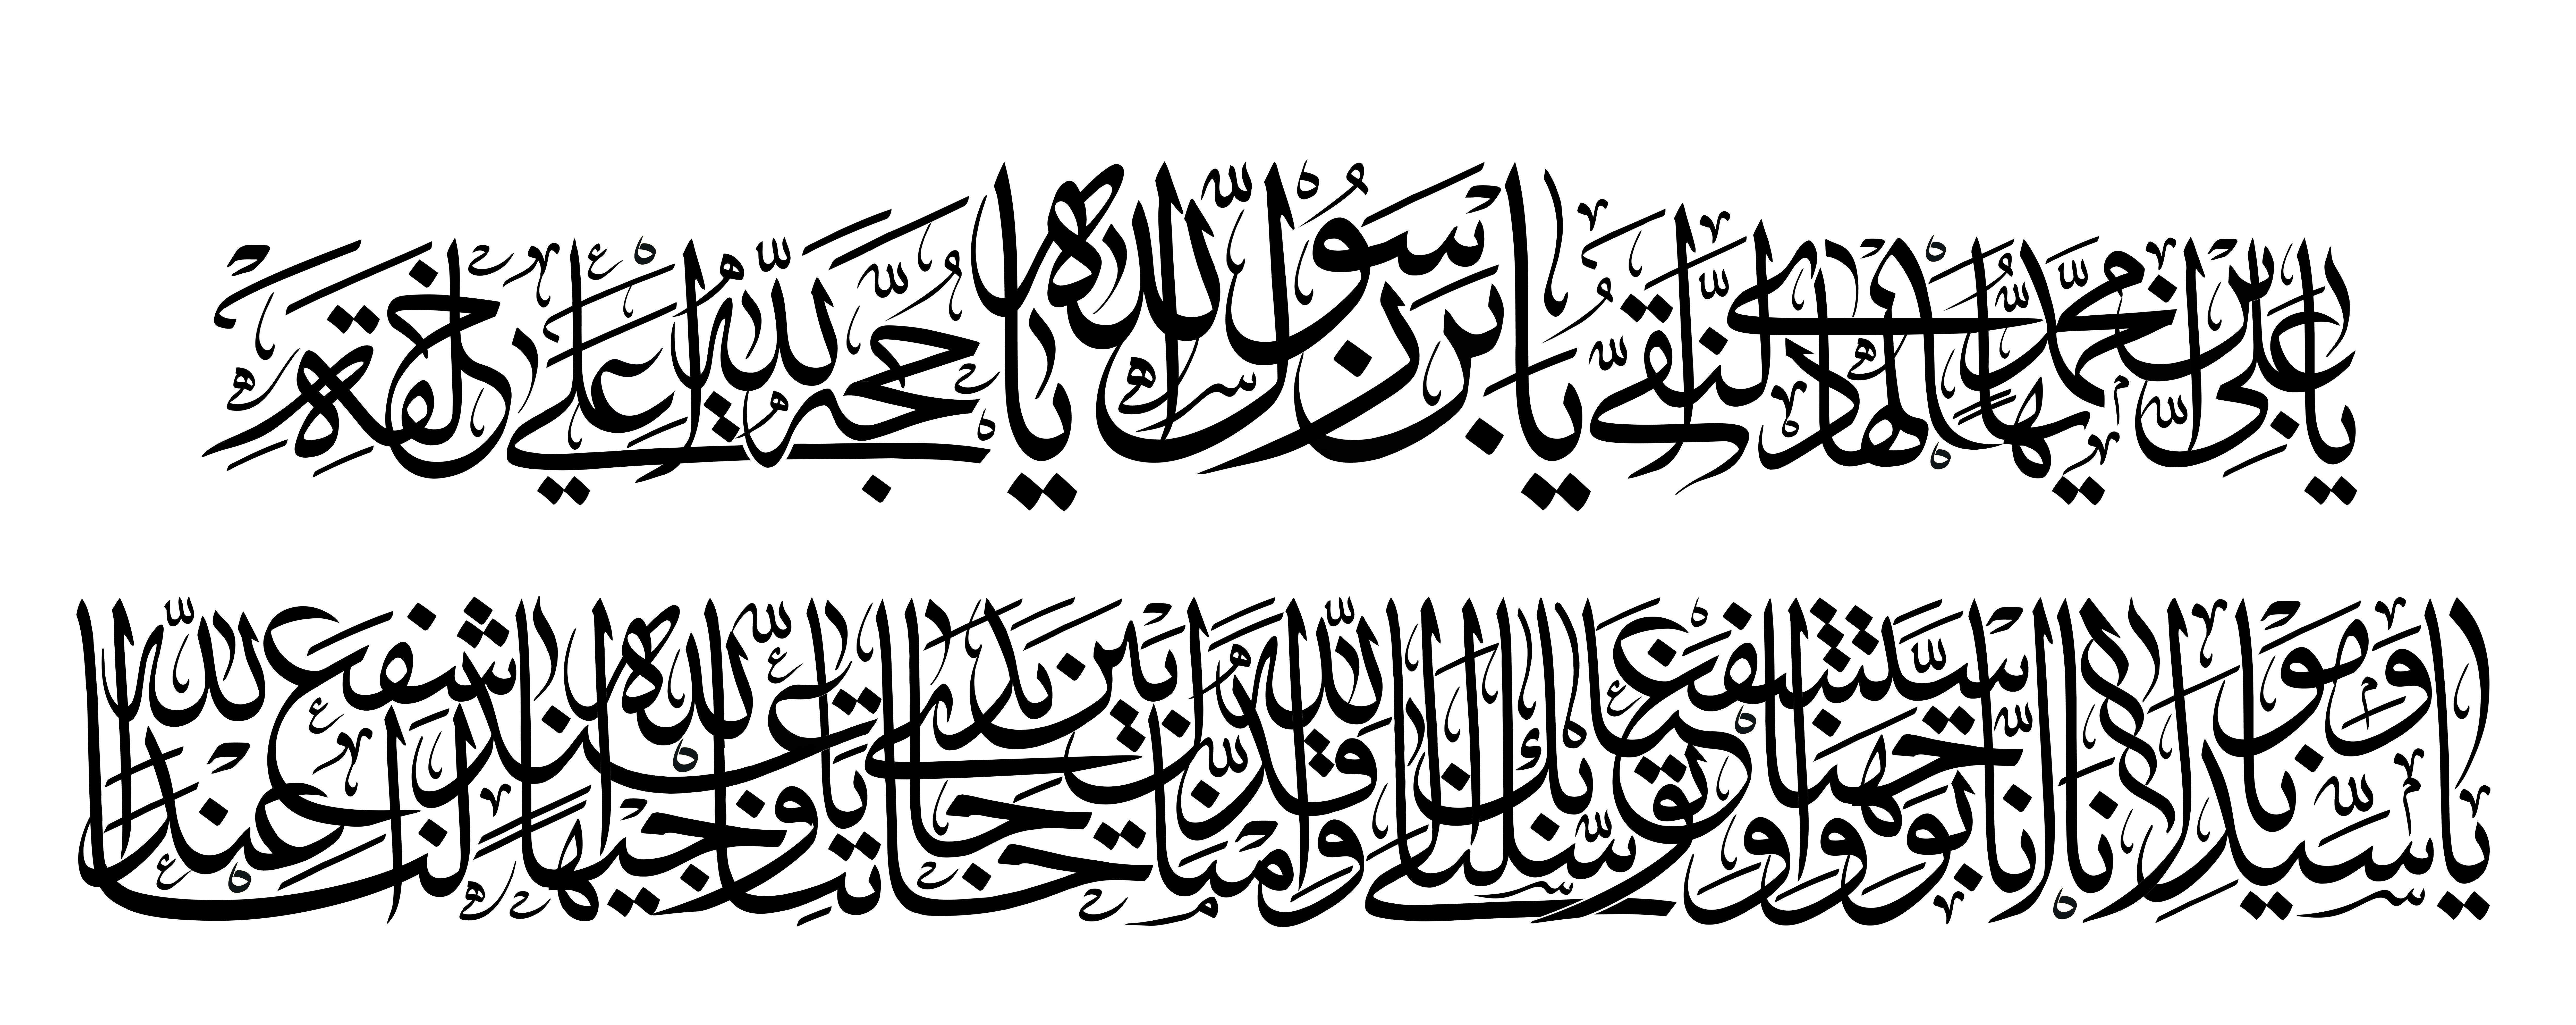 يا علي بن محمد ايها الهادي النقي يا بن رسول الله يا حجة الله على خلقه
يا سيدنا ومولانا انا توجهنا واستشفعنا وتوسلنا بك الى الله وقدمناك بين يدي حاجاتنا يا وجيها عند الله اشفع لنا عند الله